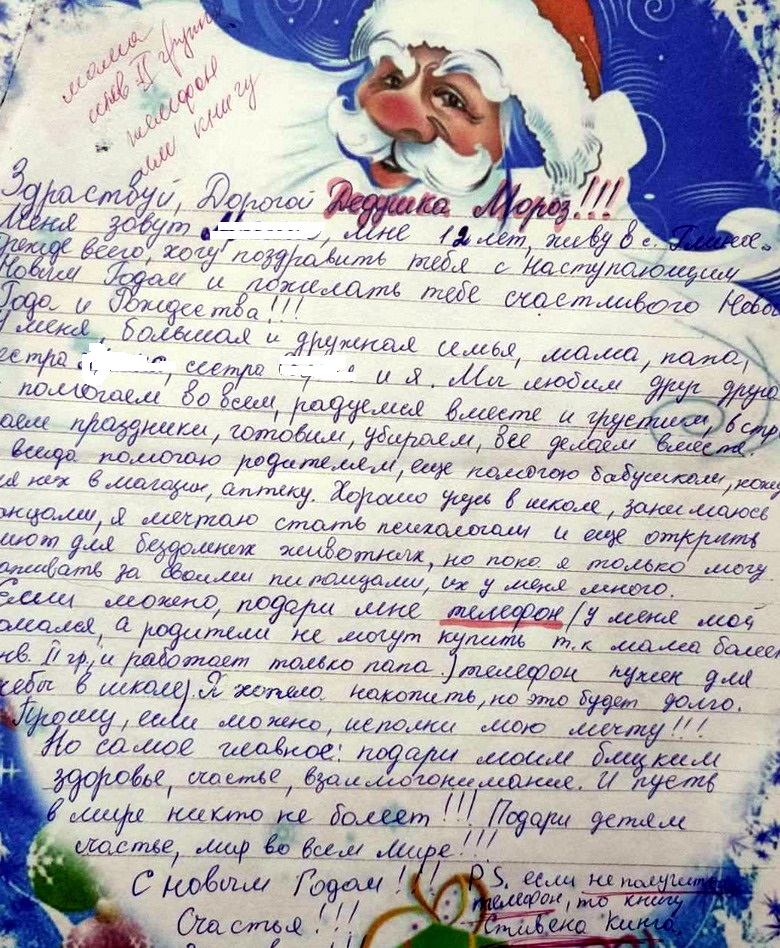 мама
инв II группы
телефон
или книгу
Здраствуй, Дорогой Дедушка Мороз!!!
Меня зовут , мне 12 лет, живу в с.
Прежде всего, хочу поздравить тебя с наступающим
Новым Годом и пожелать тебе счастливого Нового
Года и Рождества!!!
У меня, большая и дружная семья, мама, папа,
сестра , сестра и я. Мы любим друг друга
помогаем во всем, радуемся вместе и грустим, встр
аем праздники, готовим, убираем, все делаем вместе.
всегда помогаю родителям, еще помогаю бабушкам, хожу
для них в магазин, аптеку. Хорошо учусь в школе, занимаюсь
анцами, я мечтаю стать психологом и еще открыть
иют для бездомных животных, но пока я только могу
аживать за своими питомцами, их у меня много.
Если можно, подари мне телефон (у меня мой
омался, а родители не могут купить т.к мама болеет
инв. II гр, и работает только папа.) телефон нужен для
учебы в школе). Я хотела накопить, но это будет долго.
Прошу, если можно, исполни мою мечту!!!
Но самое главное: подари моим близким
здоровье, счастье, взаимопонимание. И пусть
в мире никто не болеет!!! Подари детям
счастье, мир во всем мире!!!
С новым Годом!!!
Счастья!!!
P.S. если не получится
телефон, то книгу
Стивена Кинга.